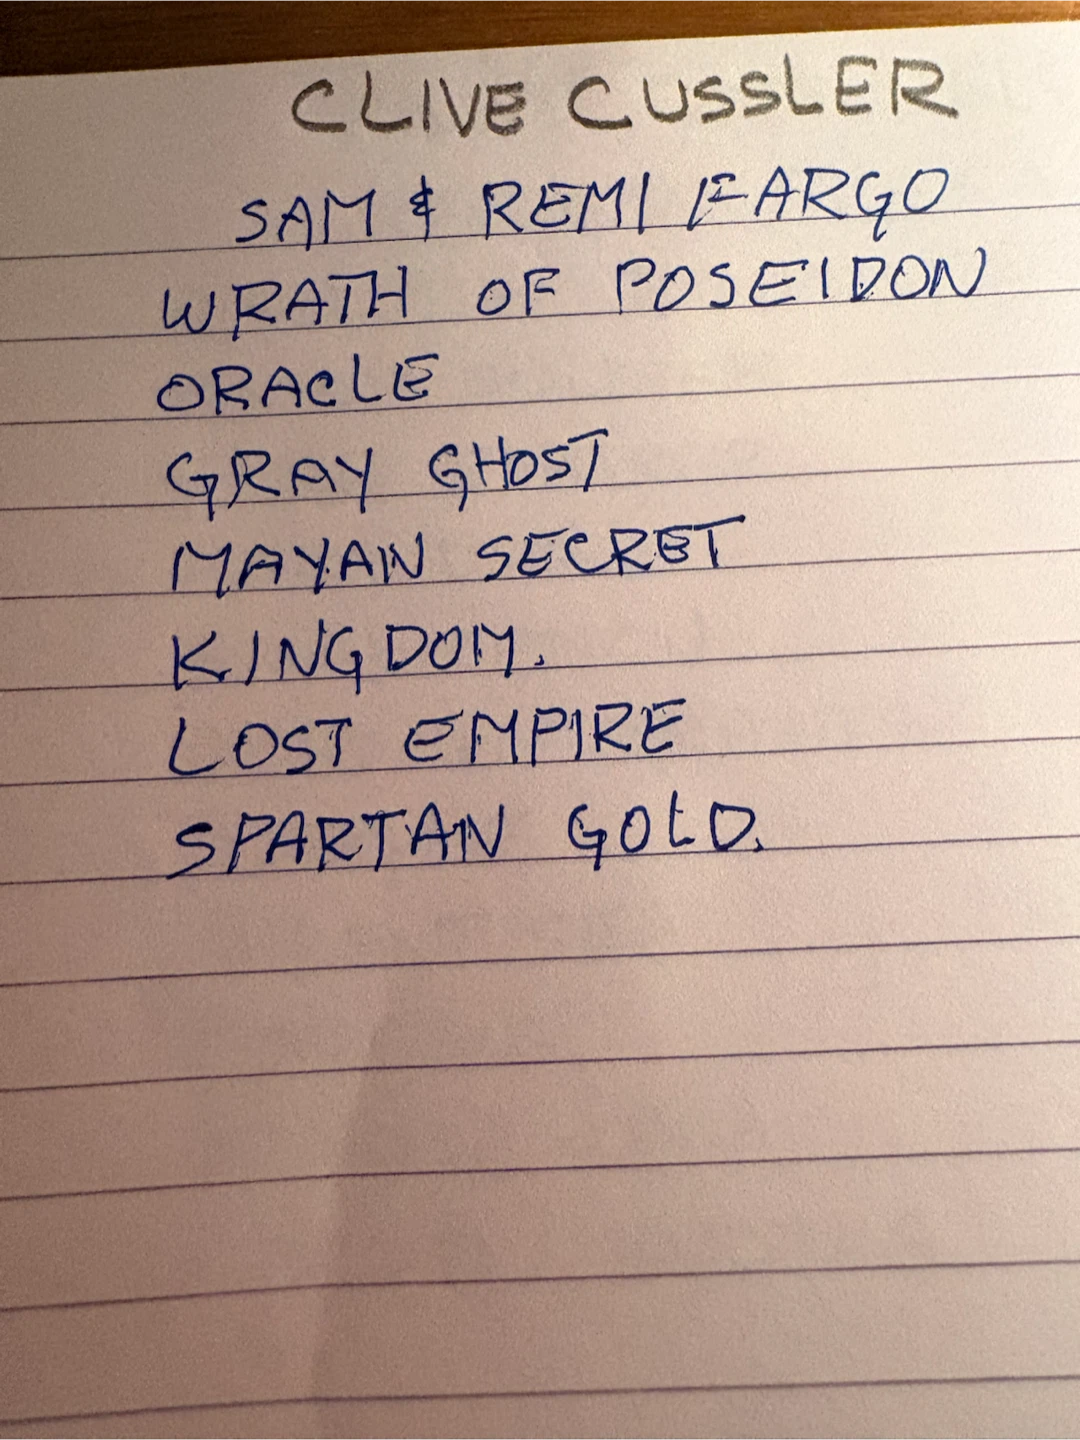 CLIVE CUSSLER
SAM & REMI FARGO
WRATH OF POSEIDON
ORACLE
GRAY GHOST
MAYAN SECRET
KINGDOM.
LOST EMPIRE
SPARTAN GOLD.